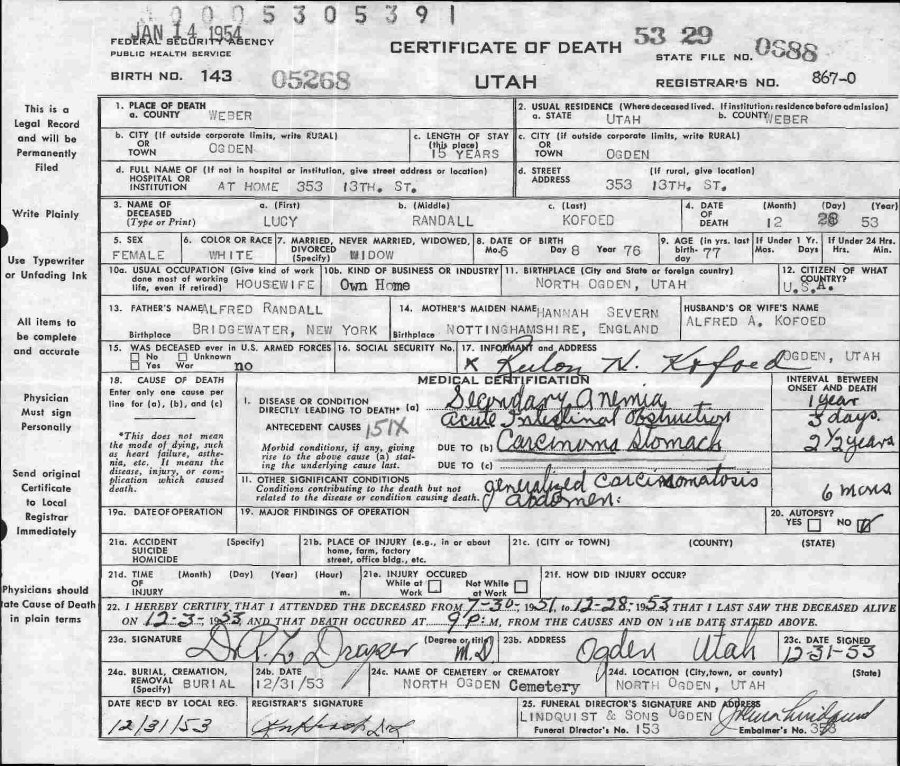 0005305391
JAN 14 1954
FEDERAL SECURITY AGENCY
PUBLIC HEALTH SERVICE
CERTIFICATE OF DEATH
53 29
STATE FILE NO. 0688
BIRTH NO. 143 05268 UTAH REGISTRAR'S NO. 867-0
This is a
Legal Record
and will be
Permanently
Filed
Write Plainly
Use Typewriter
or Unfading Ink
All items to
be complete
and accurate
Physician
Must sign
Personally
Send original
Certificate
to Local
Registrar
Immediately
Physicians should
tate Cause of Death
in plain terms
1. PLACE OF DEATH
a. COUNTY WEBER
2. USUAL RESIDENCE (Where deceased lived. If institution: residence before admission)
a. STATE UTAH b. COUNTY WEBER
b. CITY (If outside corporate limits, write RURAL)
OR
TOWN OGDEN
c. LENGTH OF STAY
(this place)
15 YEARS
c. CITY (If outside corporate limits, write RURAL)
OR
TOWN OGDEN
d. FULL NAME OF (If not in hospital or institution, give street address or location)
HOSPITAL OR
INSTITUTION AT HOME 353 13TH. ST.
d. STREET (If rural, give location)
ADDRESS 353 13TH. ST.
3. NAME OF DECEASED (Type or Print)
a. (First) b. (Middle) c. (Last)
LUCY RANDALL KOFOED
4. DATE OF DEATH (Month) (Day) (Year)
12 28 53
5. SEX
FEMALE
6. COLOR OR RACE
WHITE
7. MARRIED, NEVER MARRIED, WIDOWED,
DIVORCED
(Specify) WIDOW
8. DATE OF BIRTH
Mo. 6 Day 8 Year 76
9. AGE (In yrs. last
birth- 77
day
If Under 1 Yr.
Mos. Days
If Under 24 Hrs.
Hrs. Min.
10a. USUAL OCCUPATION (Give kind of work
done most of working
life, even if retired) HOUSEWIFE
10b. KIND OF BUSINESS OR INDUSTRY
Own Home
11. BIRTHPLACE (City and State or foreign country)
NORTH OGDEN, UTAH
12. CITIZEN OF WHAT
COUNTRY?
U.S.A.
13. FATHER'S NAME ALFRED RANDALL
Birthplace BRIDGEWATER, NEW YORK
14. MOTHER'S MAIDEN NAME HANNAH SEVERN
Birthplace NOTTINGHAMSHIRE, ENGLAND
HUSBAND'S OR WIFE'S NAME
ALFRED A. KOFOED
15. WAS DECEASED ever in U.S. ARMED FORCES
No Unknown
Yes War no
16. SOCIAL SECURITY No.
17. INFORMANT and ADDRESS
x N. Kofoed OGDEN, UTAH
18. CAUSE OF DEATH
Enter only one cause per
line for (a), (b), and (c)
*This does not mean
the mode of dying, such
as heart failure, asthe-
nia, etc. It means the
disease, injury, or com-
plication which caused
death.
MEDICAL CERTIFICATION
INTERVAL BETWEEN
ONSET AND DEATH
I. DISEASE OR CONDITION
DIRECTLY LEADING TO DEATH* (a) Secondary Anemia 1 year
Acute Intestinal Obstruction 3 days.
ANTECEDENT CAUSES 151X
Morbid conditions, if any, giving
rise to the above cause (a) stat-
ing the underlying cause last.
DUE TO (b) Carcinoma Stomach 2 1/2 years
DUE TO (c)
II. OTHER SIGNIFICANT CONDITIONS
Conditions contributing to the death but not
related to the disease or condition causing death.
generalized Carcinomatosis
abdomen: 6 mons
19a. DATE OF OPERATION
19. MAJOR FINDINGS OF OPERATION
20. AUTOPSY?
YES NO
21a. ACCIDENT (Specify)
SUICIDE
HOMICIDE
21b. PLACE OF INJURY (e.g., in or about
home, farm, factory
street, office bldg., etc.
21c. (CITY or TOWN) (COUNTY) (STATE)
21d. TIME (Month) (Day) (Year) (Hour)
OF
INJURY m.
21e. INJURY OCCURED
While at Work Not While at Work
21f. HOW DID INJURY OCCUR?
22. I HEREBY CERTIFY THAT I ATTENDED THE DECEASED FROM 7-30-1951, to 12-28-1953 THAT I LAST SAW THE DECEASED ALIVE
ON 12-3-1953 AND THAT DEATH OCCURED AT 9 P.M, FROM THE CAUSES AND ON THE DATE STATED ABOVE.
23a. SIGNATURE (Degree or title)
Draper M.D
23b. ADDRESS
Ogden Utah
23c. DATE SIGNED
12-31-53
24a. BURIAL, CREMATION,
REMOVAL
(Specify) BURIAL
24b. DATE
12/31/53
24c. NAME OF CEMETERY or CREMATORY
NORTH OGDEN Cemetery
24d. LOCATION (City, town, or county) (State)
NORTH OGDEN, UTAH
DATE REC'D BY LOCAL REG.
12/31/53
REGISTRAR'S SIGNATURE
25. FUNERAL DIRECTOR'S SIGNATURE AND ADDRESS
LINDQUIST & SONS OGDEN
Funeral Director's No. 153 Embalmer's No.